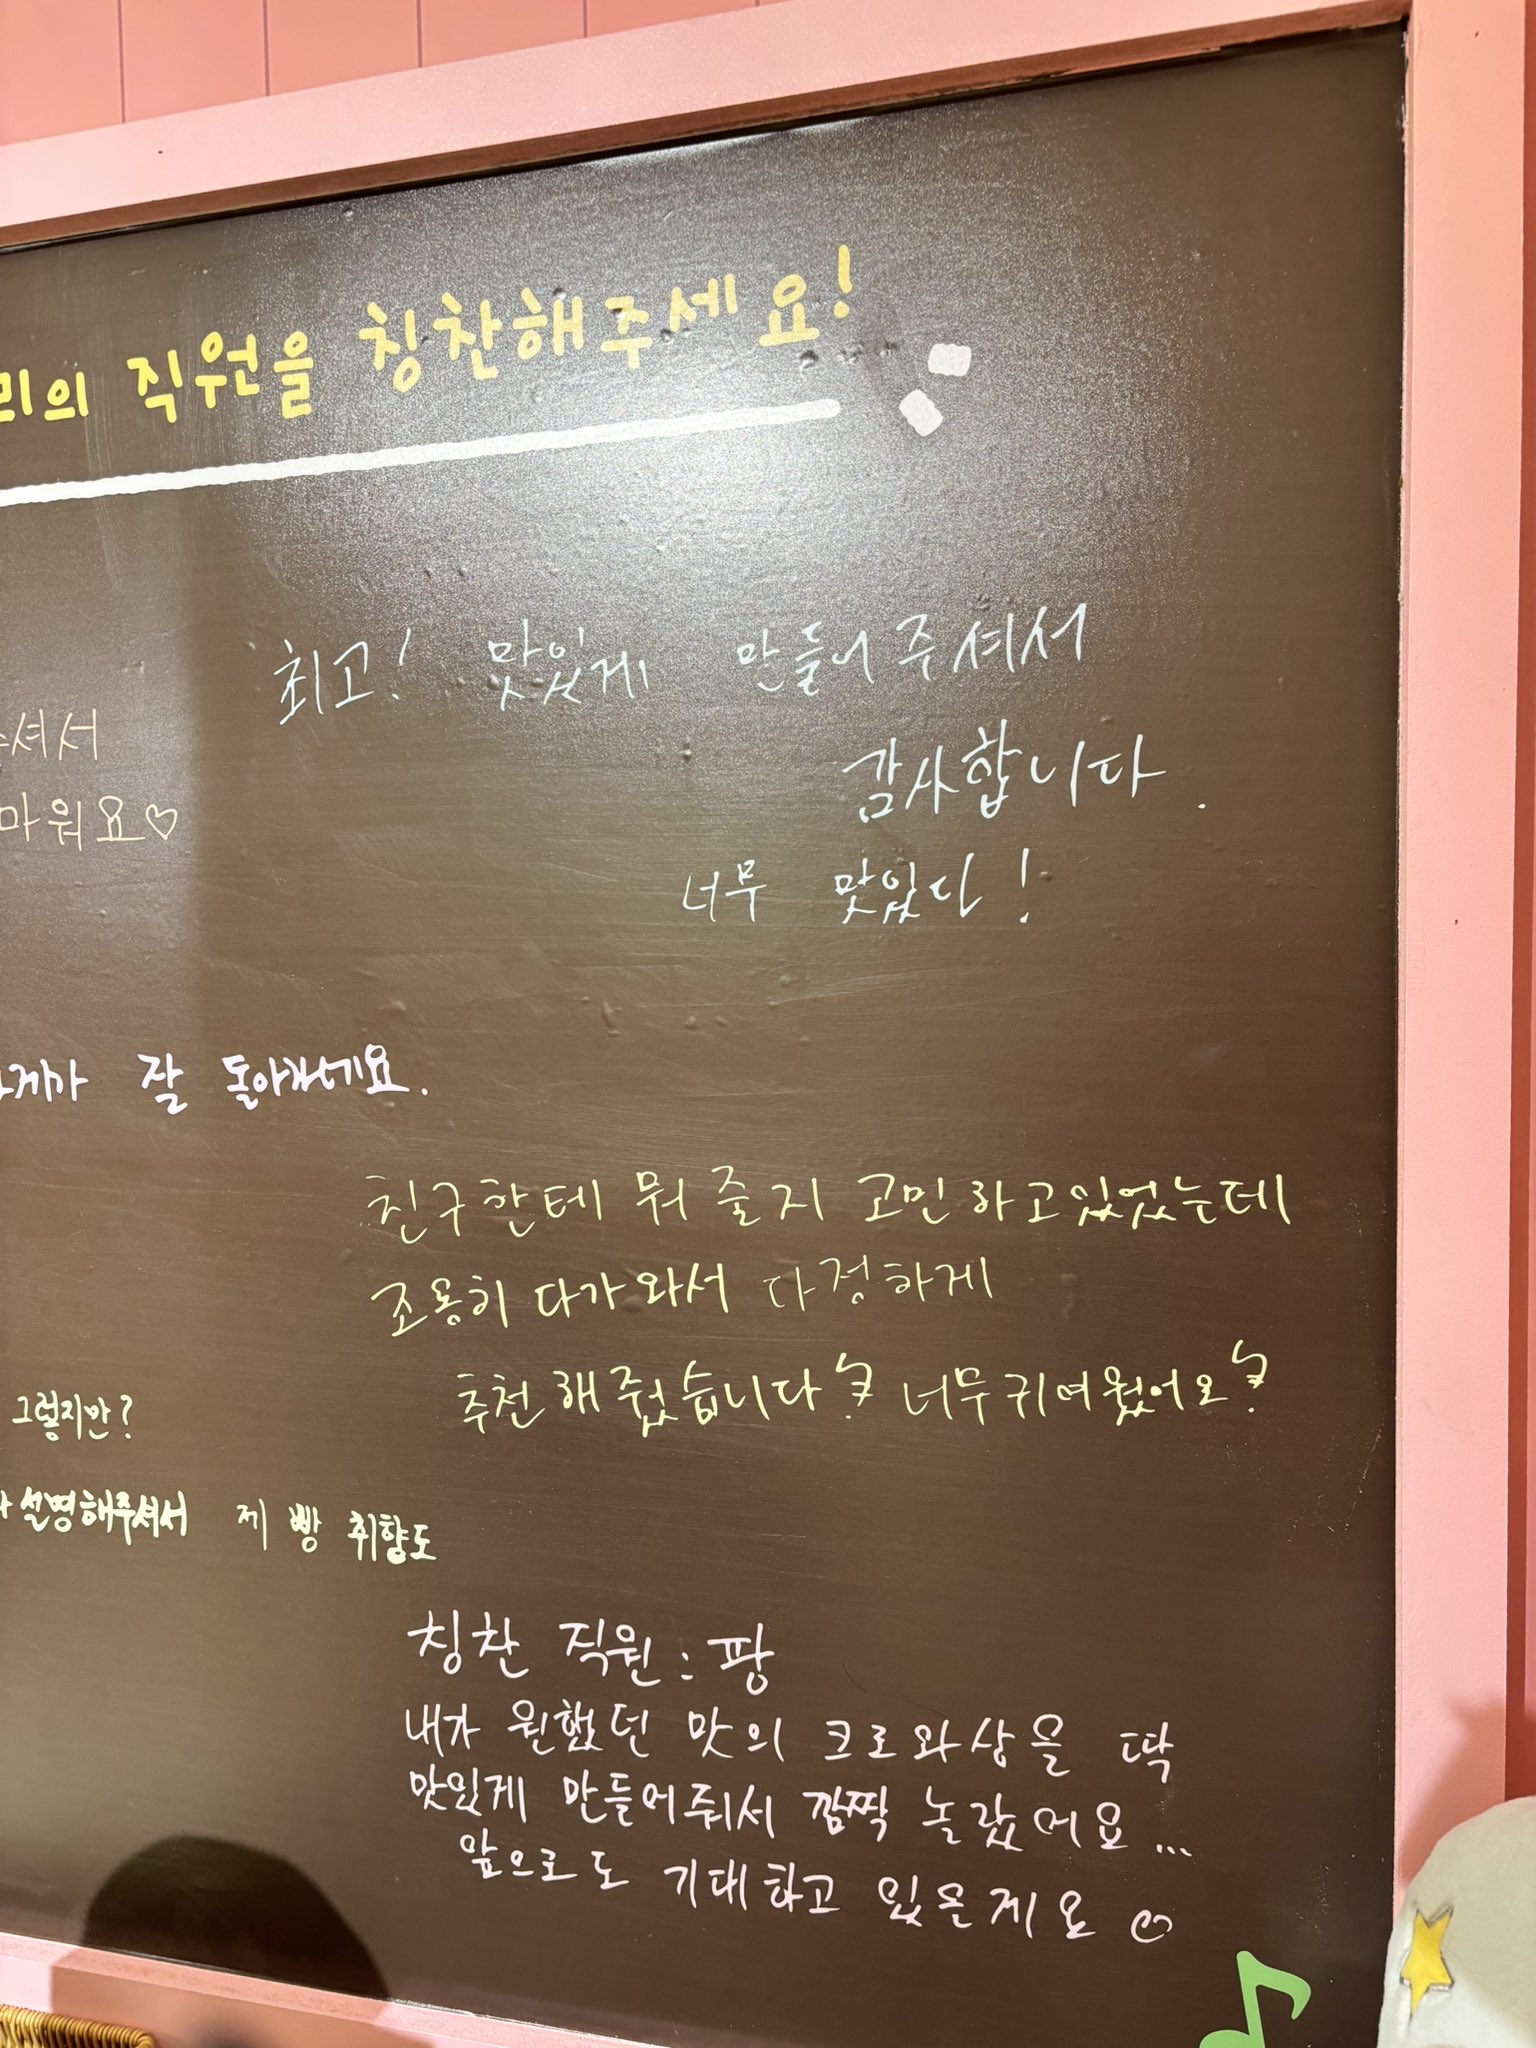 리의 직원을 칭찬해주세요!
최고! 맛있게 만들어주셔서
감사합니다.
너무 맛있다!
셔서
마워요♡
게가 잘 돌아가세요.
친구한테 뭐 줄지 고민하고있었는데
조용히 다가와서 다정하게
추천해줬습니다 너무귀여웠어요
그렇지만?
설명해주셔서 제 빵 취향도
칭찬 직원 : 팡
내가 원했던 맛의 크로와상을 딱
맛있게 만들어줘서 깜짝 놀랐어요...
앞으로도 기대하고 있을게요